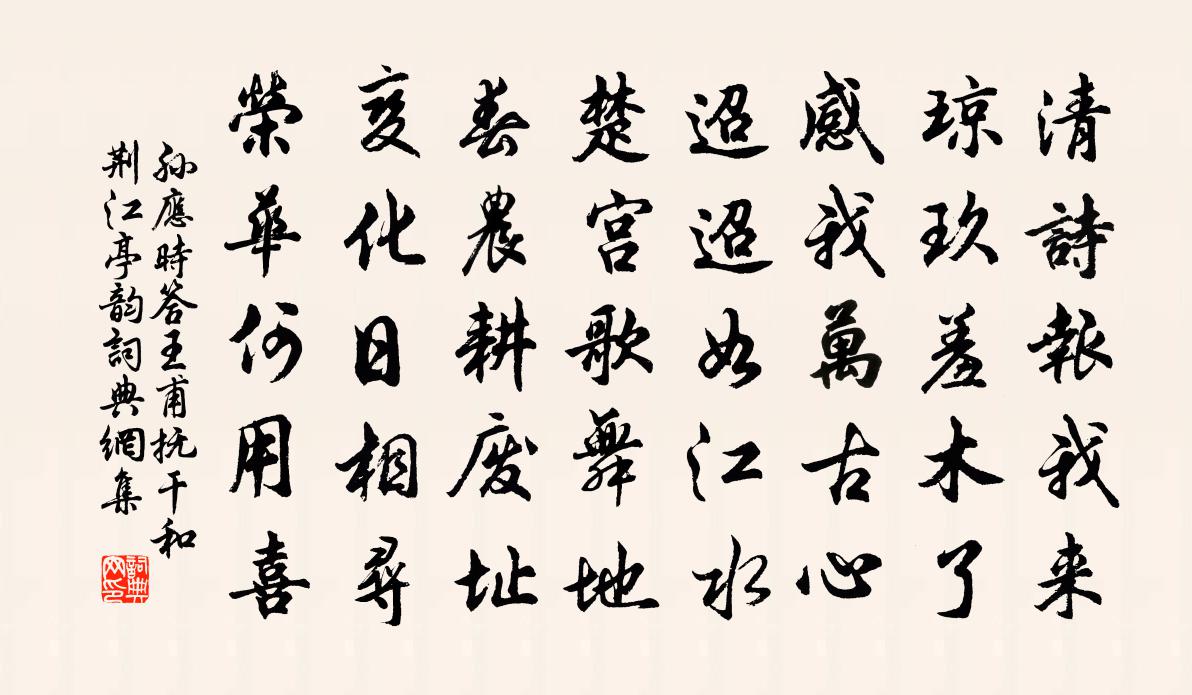 清詩報我来
琼玖羞木了
感我萬古心
迢迢如江水
楚宫歌舞地
春農耕废址
变化日相尋
榮華何用喜
孙應時答王甫抚干和
荆江亭韵詞典網集
詞典網印